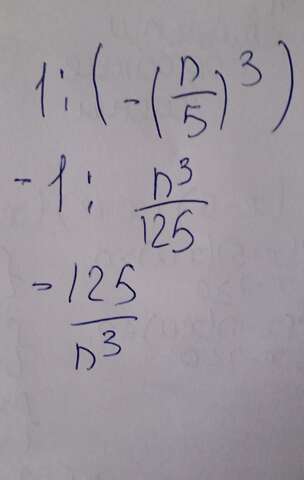 1:(-(n/5)^3)
-1: n^3/125
-125/n^3